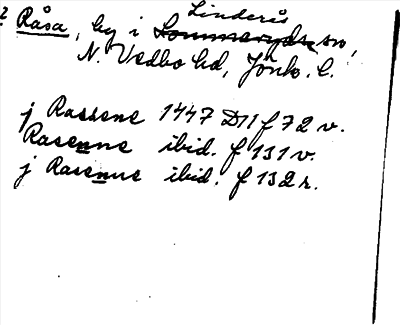 2 Råsa, by i Linderås Sommeryds sn,
N. Vedbo hd, Jönk. l.
j Rassene 1447 D11 f 72 v.
Rasenne ibid. f 131 v.
j Rasenne ibid. f 132 r.